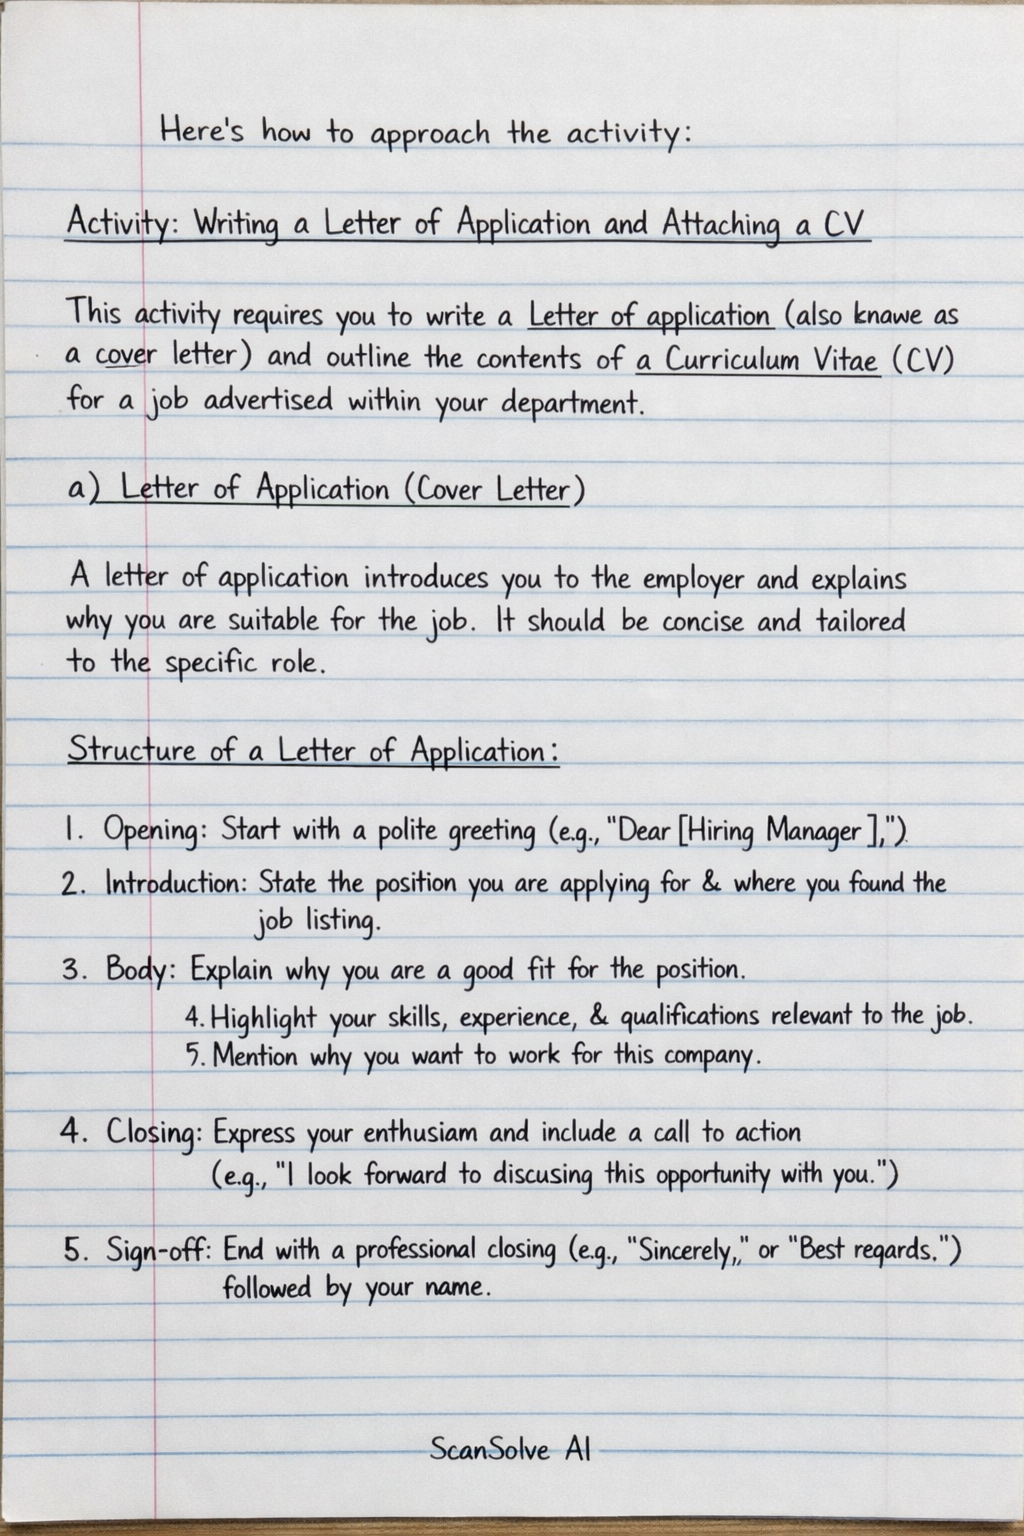 Here's how to approach the activity:
Activity: Writing a Letter of Application and Attaching a CV
This activity requires you to write a Letter of application (also knawe as
a cover letter) and outline the contents of a Curriculum Vitae (CV)
for a job advertised within your department.
a) Letter of Application (Cover Letter)
A letter of application introduces you to the employer and explains
why you are suitable for the job. It should be concise and tailored
to the specific role.
Structure of a Letter of Application:
1. Opening: Start with a polite greeting (e.g., "Dear [Hiring Manager],").
2. Introduction: State the position you are applying for & where you found the
job listing.
3. Body: Explain why you are a good fit for the position.
4. Highlight your skills, experience, & qualifications relevant to the job.
5. Mention why you want to work for this company.
4. Closing: Express your enthusiam and include a call to action
(e.g., "I look forward to discusing this opportunity with you.")
5. Sign-off: End with a professional closing (e.g., "Sincerely,," or "Best regards.")
followed by your name.
ScanSolve AI